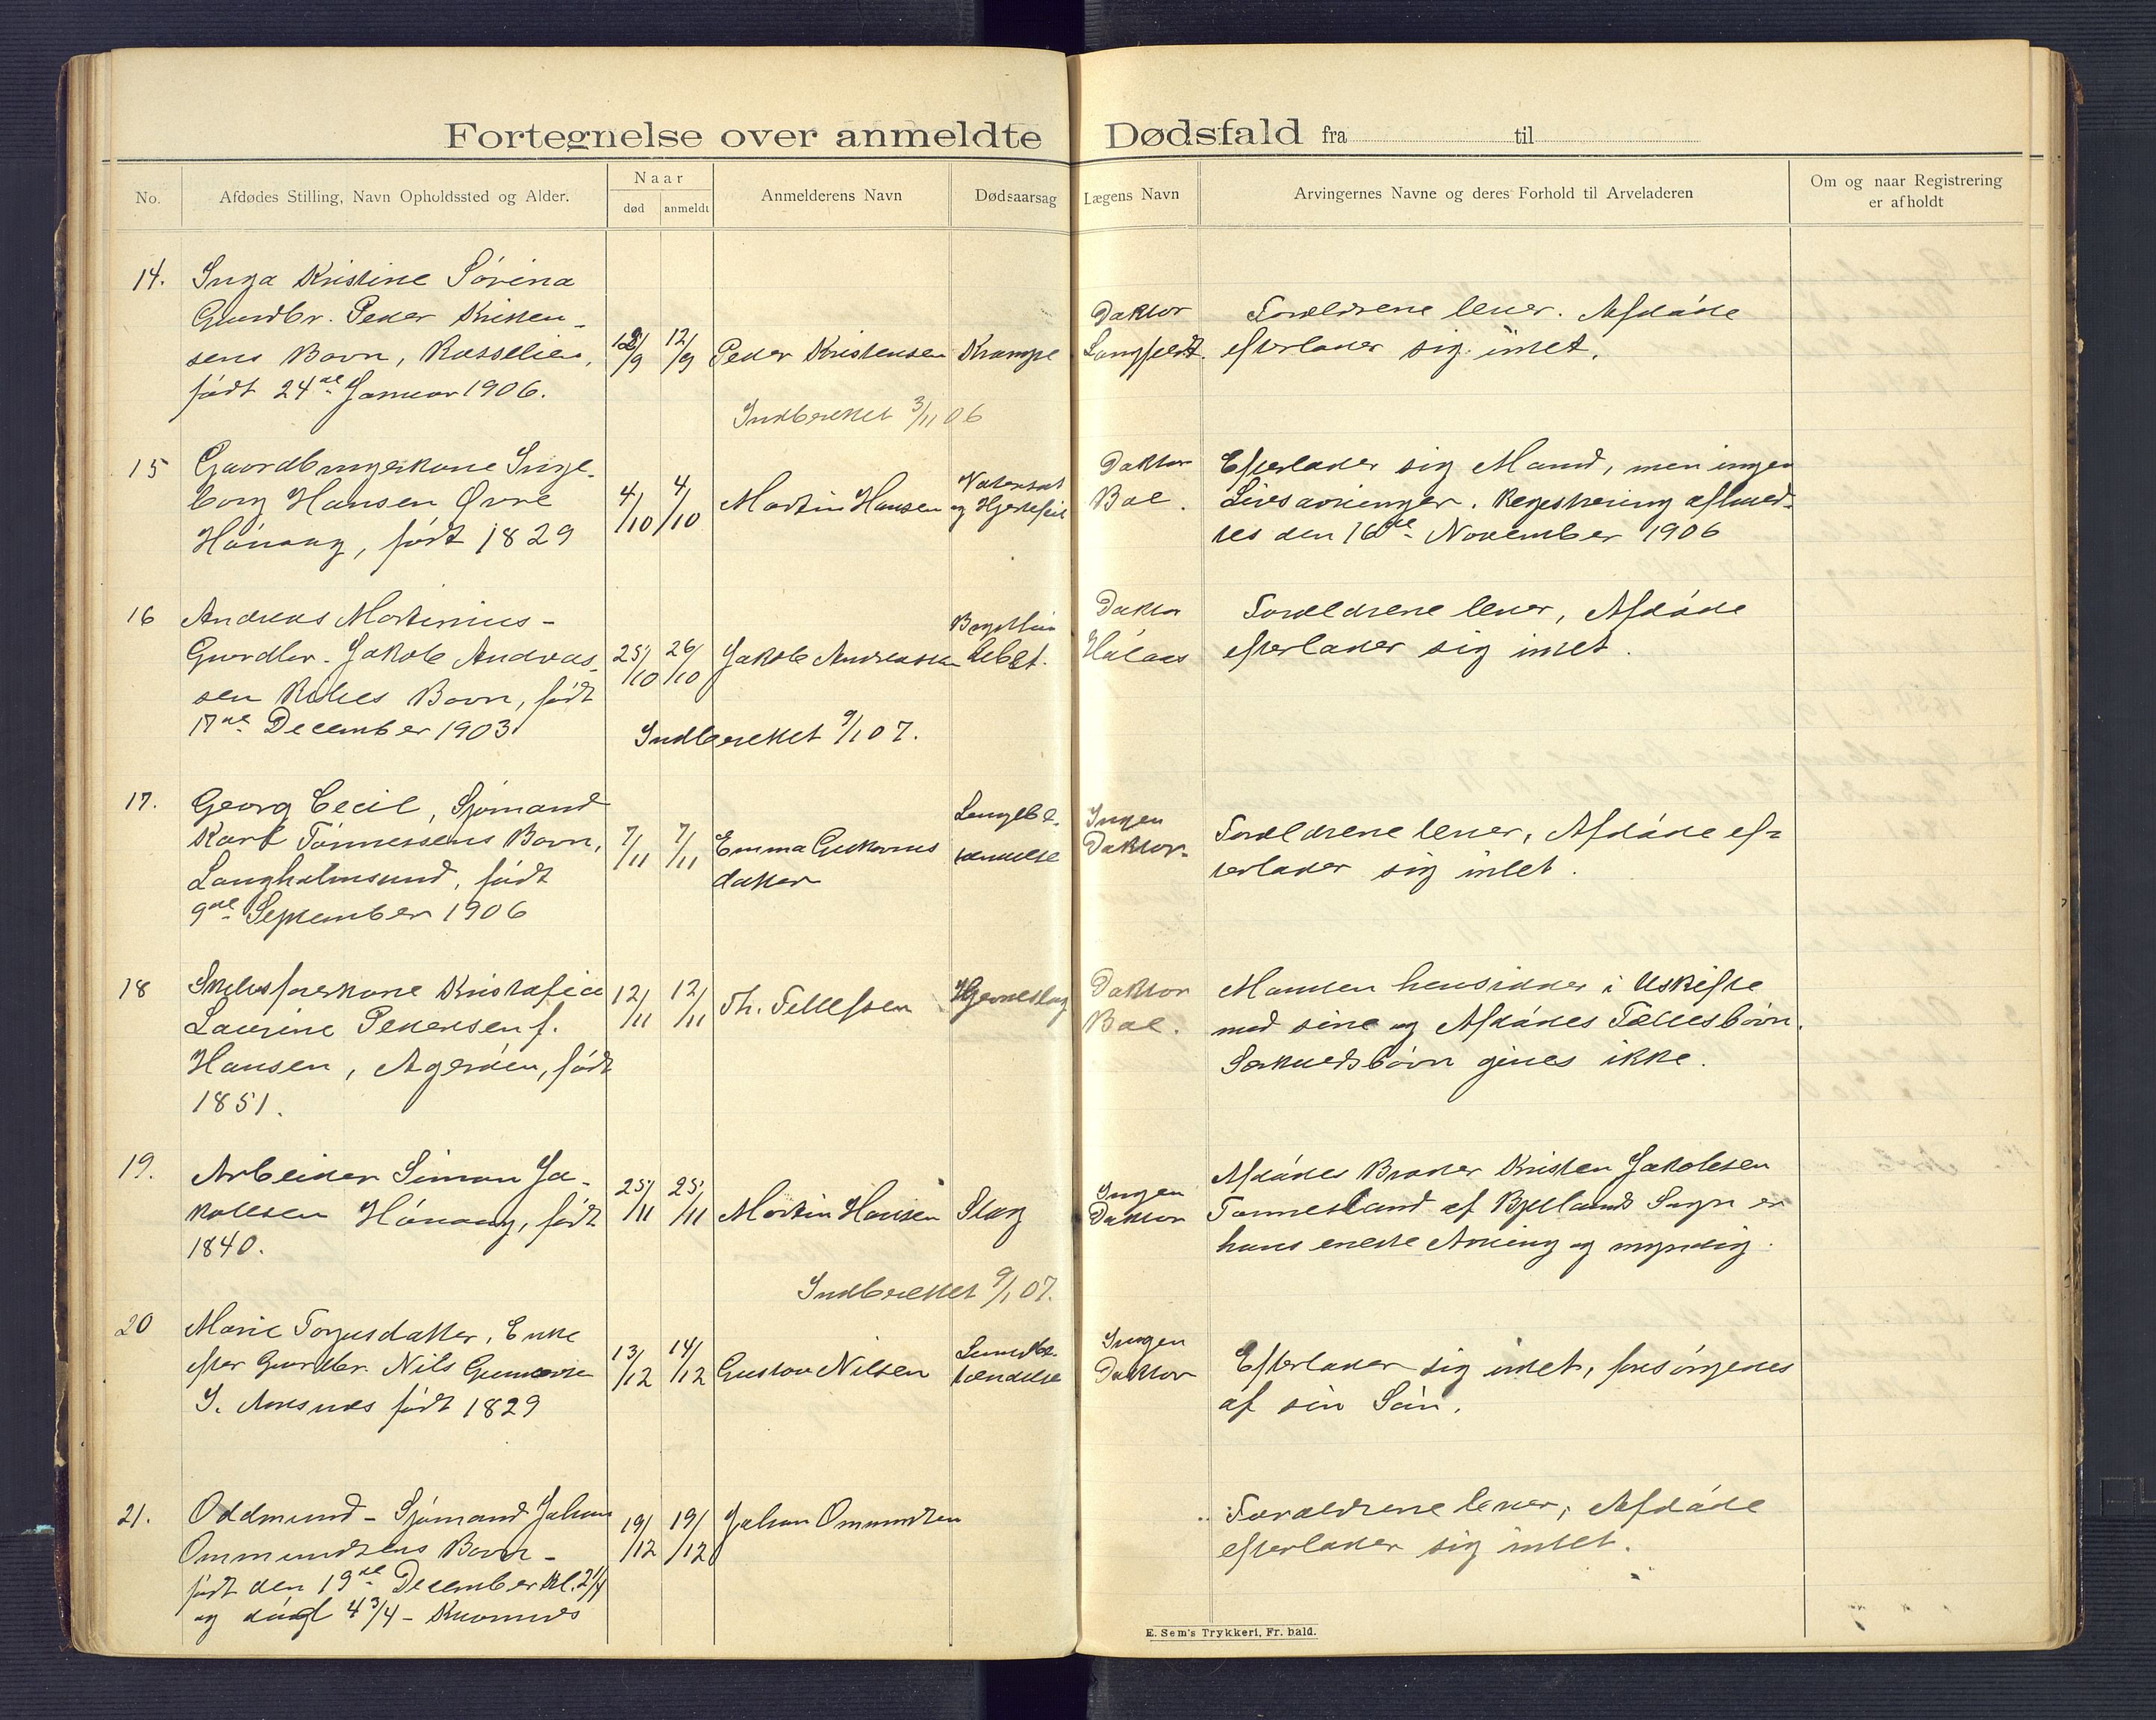 Fortegnelse over anmeldte Dødsfald fra til
No.
Afdødes Stilling, Navn Opholdssted og Alder.
Naar
død
anmeldt
Anmelderens Navn
Dødsaarsag
Lægens Navn
Arvingernes Navne og deres Forhold til Arveladeren
Om og naar Registrering
er afholdt
14.
Inga Kristine Sørina
Gaardbr. Peder Kristen-
sens Barn,
født 24de Januar 1906.
12/9
Peder Kristensen
Krampe
Doktor
Langfeldt
Forældrene lever. Afdøde
efterlader sig intet.
Indberettet 3/11 06
15
Gaardbrugerkone Inge-
borg Hansen Øvre
Hånang, født 1829
4/10
4/10
Martin Hansen
Vatersot
og Hjertefeil
Doktor
Bae.
Efterlader sig Mand, men ingen
Livsarvinger. Registrering afhold-
tes den 16de November 1906
16
Andreas Martinius -
Gaardbr. Jakob Andreas-
sen Barn, født
17de December 1903
25/10
26/10
Jakob Andreassen
Doktor
Forældrene lever, Afdøde
efterlader sig intet.
Indberettet 9/1 07.
17.
Georg Cecil, Sjømand
Karl Tønnessens Barn,
Langholmsund, født
9de September 1906
7/11
7/11
Emma
datter
Lungebe-
tændelse
Ingen
Doktor
Forældrene lever, Afdøde ef-
terlader sig intet.
18
Kristofia
Laurine Pedersen f.
Hansen, Agerøen, født
1851.
12/11
12/11
Th. Tellefsen
Hjerneslag
Doktor
Bae.
Manden hensidder i Uskifte
med sine og Afdødes Fællesbørn.
Særkuldsbørn gives ikke.
19.
Arbeider Simon Ja-
kobsen Hånang, født
1840.
25/11
25/11
Martin Hansen
Slag
Ingen
Doktor
Afdødes Broder Kristen Jakobsen
Tonnesland af Bjelland Sogn er
hans eneste Arving og myndig.
Indberettet 9/1 07.
20
Marie Torjusdatter, Enke
efter Gaardbr. Nils
født 1829
13/12
14/12
Gustav Nilsen
Lungebe-
tændelse
Ingen
Doktor
Efterlader sig intet, forsørgedes
af sin Søn.
21.
Oddmund - Sjømand Johan
Ommundsens Barn -
født den 19de December Kl. 2 1/4
og død 4 3/4 -
19/12
19/12
Johan Ommundsen
Forældrene lever; Afdøde
efterlader sig intet.
E. Sem's Trykkeri, Fr. hald.